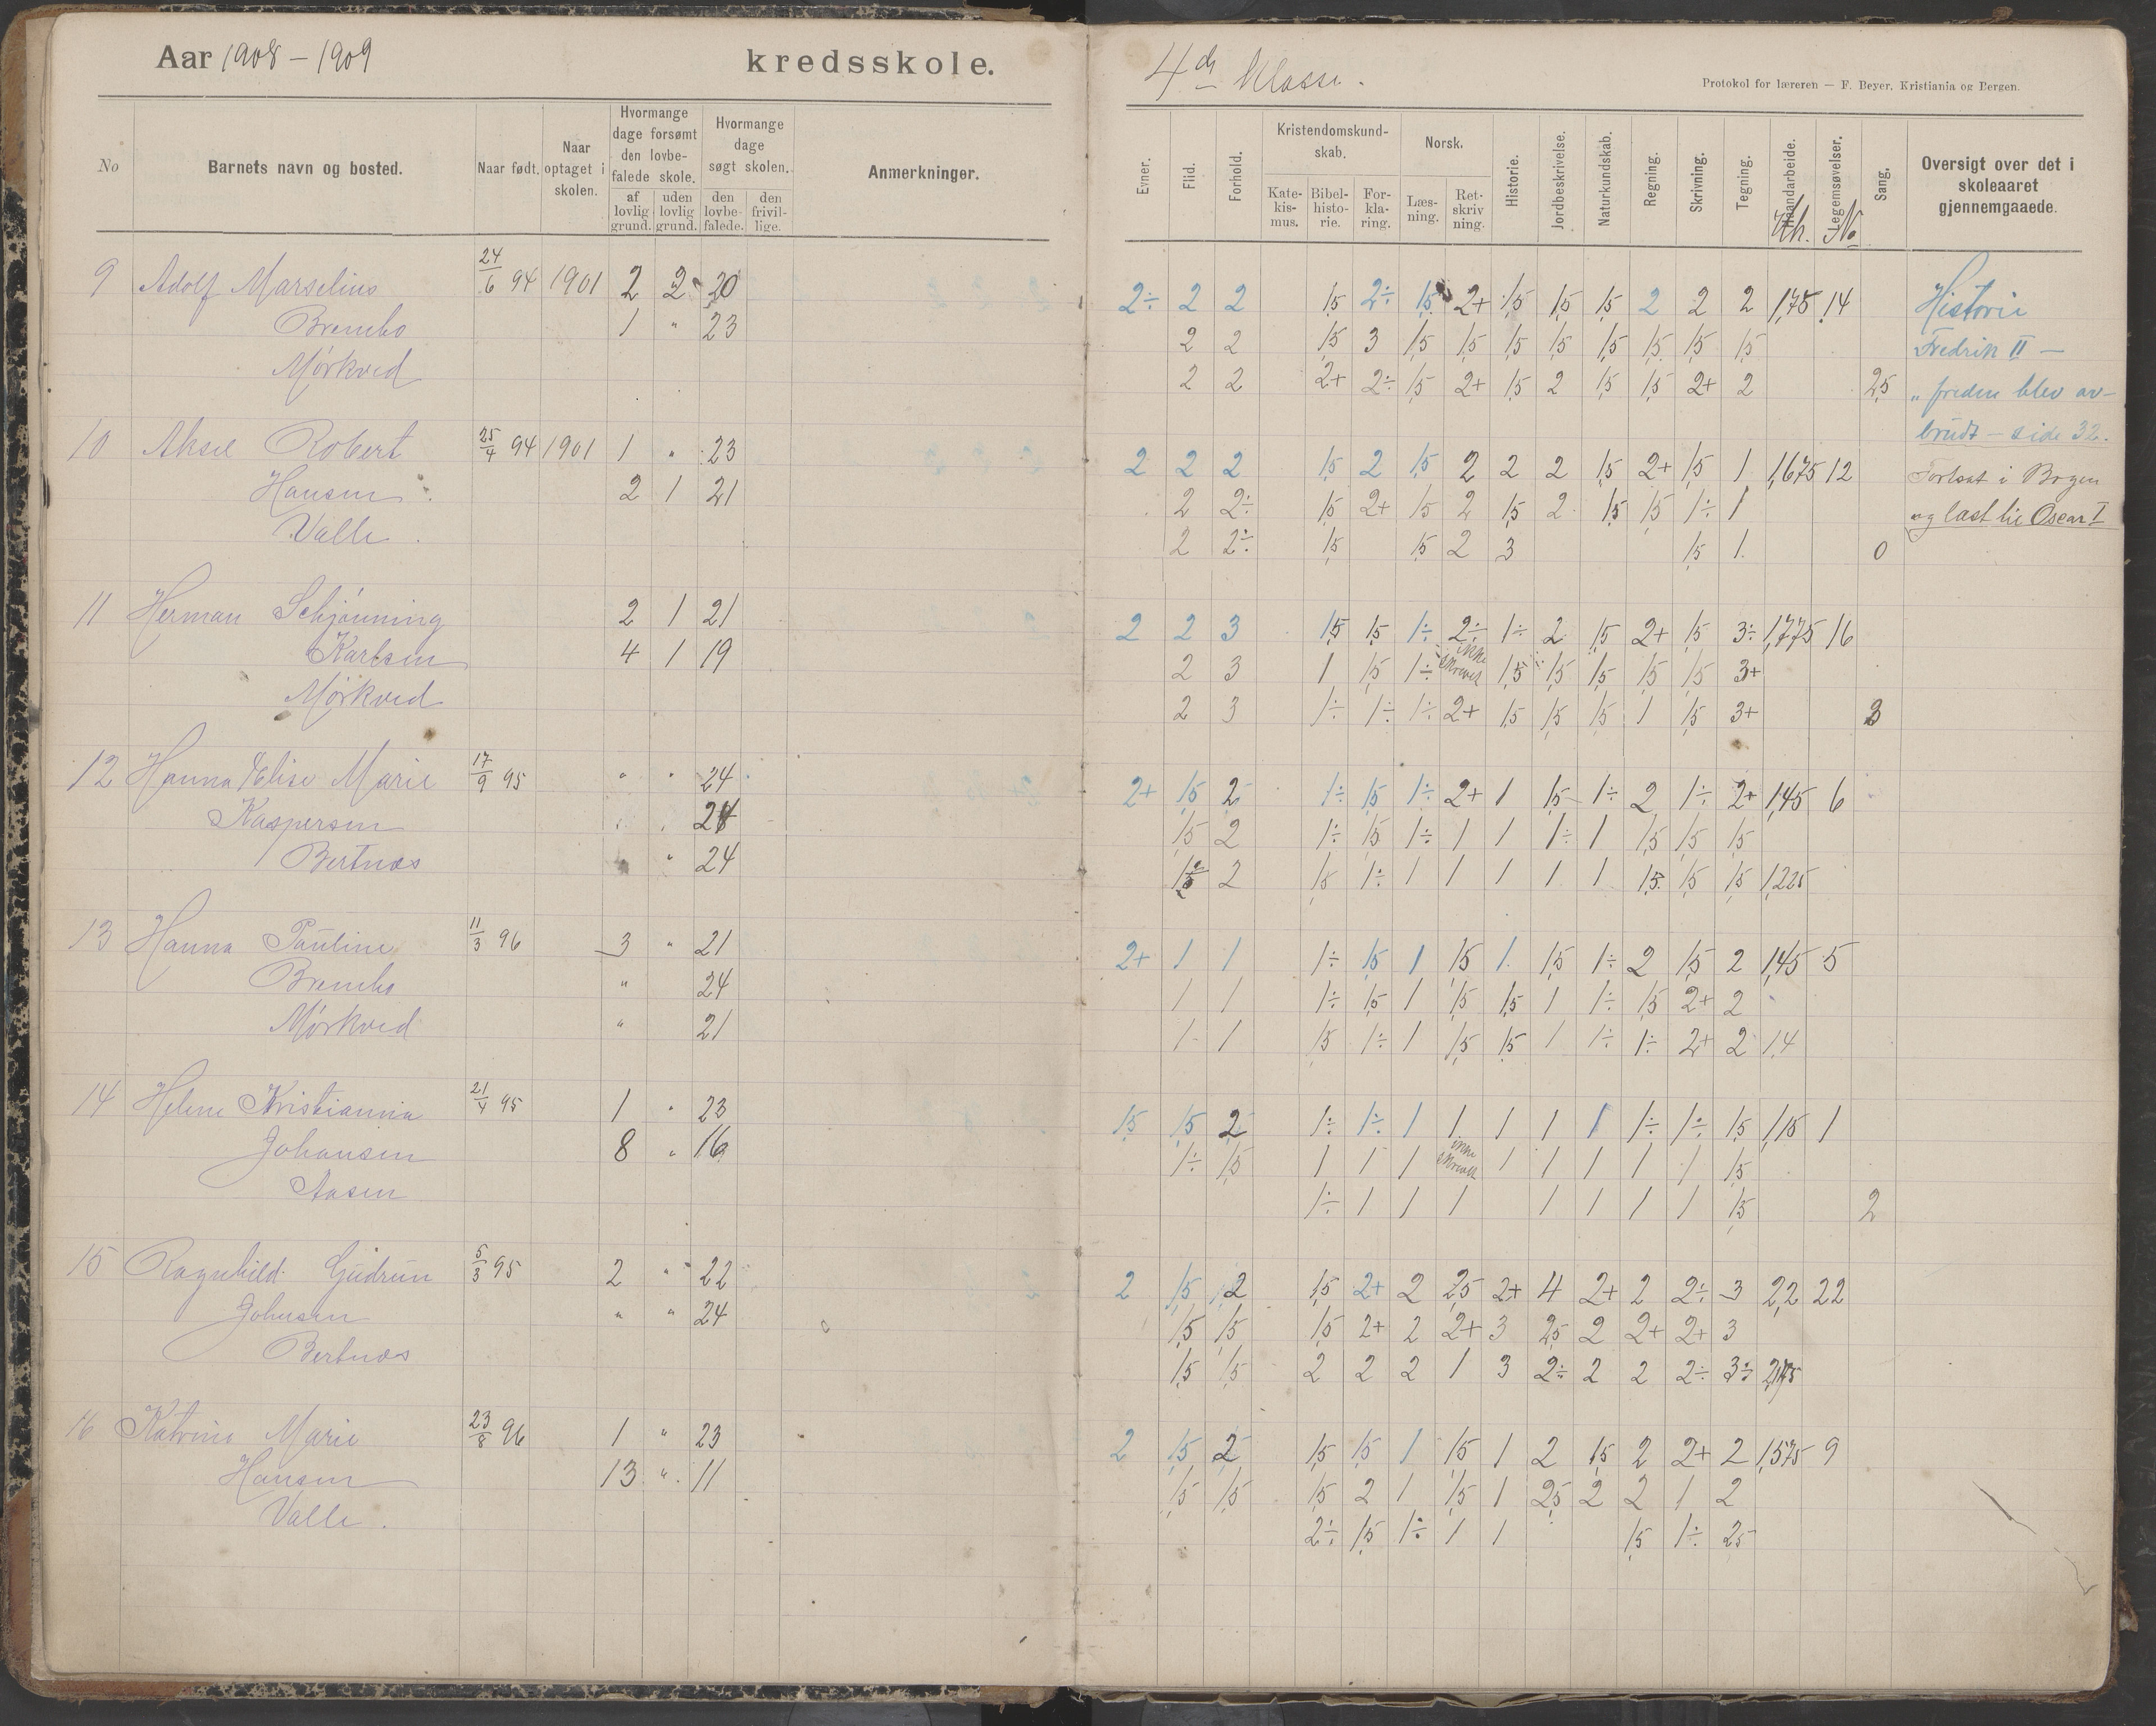 Aar 1908 – 1909 kredsskole.
4de Klasse.
Protokol for læreren — F. Beyer, Kristiania og Bergen.
No
Barnets navn og bosted.
Naar født.
Naar optaget i skolen.
Hvormange dage forsømt den lovbefalede skole.
af lovlig grund.
uden lovlig grund.
Hvormange dage søgt skolen.
den lovbefalede.
den frivillige.
Anmerkninger.
Evner.
Flid.
Forhold.
Kristendomskundskab.
Katekismus.
Bibelhistorie.
Forklaring.
Norsk.
Læsning.
Retskrivning.
Historie.
Jordbeskrivelse.
Naturkundskab.
Regning.
Skrivning.
Tegning.
Haandarbeide.
Legemsøvelser.
Sang.
Oversigt over det i skoleaaret gjennemgaaede.
No
9 Adolf Marselius 24/6 94 1901 2 2 20 2÷ 2 2 1,5 2÷ 1,5 2+ 1,5 1,5 1,5 2 2 2 1,75 14 Historie
Brembo 1 " 23 2 2 1,5 3 1,5 1,5 1,5 1,5 1,5 1,5 1,5 1,5 Fredrik II —
Mørkved 2 2 2+ 2÷ 1,5 2+ 1,5 2 1,5 1,5 2+ 2 2,5 „ freden blev av-
brudt — side 32.
10 Aksel Robert 25/4 94 1901 1 " 23 2 2 2 1,5 2 1,5 2 2 2 1,5 2+ 1,5 1 1,675 12 Fortsat i Bogen
Hansen 2 1 21 2 2÷ 1,5 2+ 1,5 2 1,5 2 1,5 1,5 1÷ 1 og læst til Oscar I
Valle. 2 2÷ 1,5 1,5 2 3 1,5 1 0
11 Herman Schjønning 2 1 21 2 2 3 1,5 1,5 1÷ 2÷ 1÷ 2 1,5 2+ 1,5 3÷ 1,775 16
Karlsen 4 1 19 2 3 1 1,5 1÷ ikke skrevet 1,5 1,5 1,5 1,5 1,5 3+
Mørkved 2 3 1÷ 1÷ 1÷ 2+ 1,5 1,5 1,5 1 1,5 3+ 3
12 Hanna Elise Marie 17/9 95 " " 24 2+ 1,5 2 1÷ 1,5 1÷ 2+ 1 1,5 1÷ 2 1÷ 2+ 1,45 6
Kaspersen 24 1,5 2 1÷ 1,5 1÷ 1 1 1÷ 1 1,5 1,5 1,5
Bertnes " 24 2 1,5 1÷ 1 1 1 1 1 1,5 1,5 1,5 1,225
13 Hanna Pauline 11/3 96 3 " 21 2+ 1 1 1÷ 1,5 1 1,5 1 1,5 1÷ 2 1,5 2 1,45 5
Brembo " 24 1 1 1÷ 1,5 1 1,5 1,5 1 1÷ 1,5 2+ 2
Mørkved " 21 1 1 1,5 1÷ 1 1,5 1,5 1 1÷ 1÷ 2+ 2 1,4
14 Helene Kristianna 21/4 95 1 " 23 1,5 1,5 2 1÷ 1÷ 1 1 1 1 1 1÷ 1÷ 1,5 1,15 1
Johansen 8 " 16 1÷ 1,5 1 1 1 ikke skrevet 1 1 1 1 1 1,5
Aasen 1÷ 1 1 1 1 1 1 1 1,5 2
15 Ragnhild Gudrun 5/3 95 2 " 22 2 1,5 2 1,5 2+ 2 2,5 2+ 4 2+ 2 2÷ 3 2,2 22
Johnsen " " 24 1,5 1,5 1,5 2+ 2 2+ 3 2,5 2 2+ 2+ 3
Bertnes 1,5 1,5 2 2 2 1 3 2÷ 2 2 2÷ 3÷
16 Katrine Marie 23/8 96 1 " 23 2 1,5 2 1,5 1,5 1 1,5 1 2 1,5 2 2+ 2 1,575 9
Hansen 13 " 11 1,5 1,5 1,5 2 1 1,5 1 2,5 2 2 1 2
Valle. 2÷ 1,5 1÷ 1 1 1,5 1÷ 2,5